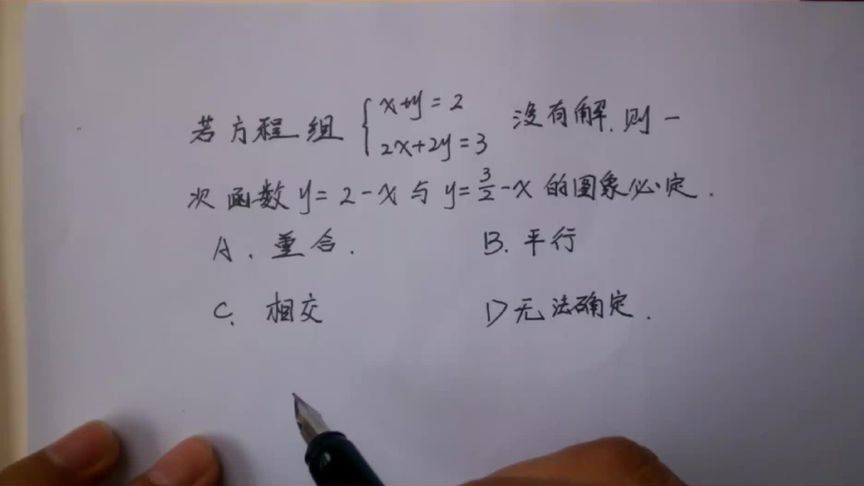 若方程组 { x+y=2 没有解.则一
2x+2y=3
次函数y=2-x与y=3/2-x的图象必定.
A.重合. B.平行
C.相交 D无法确定.